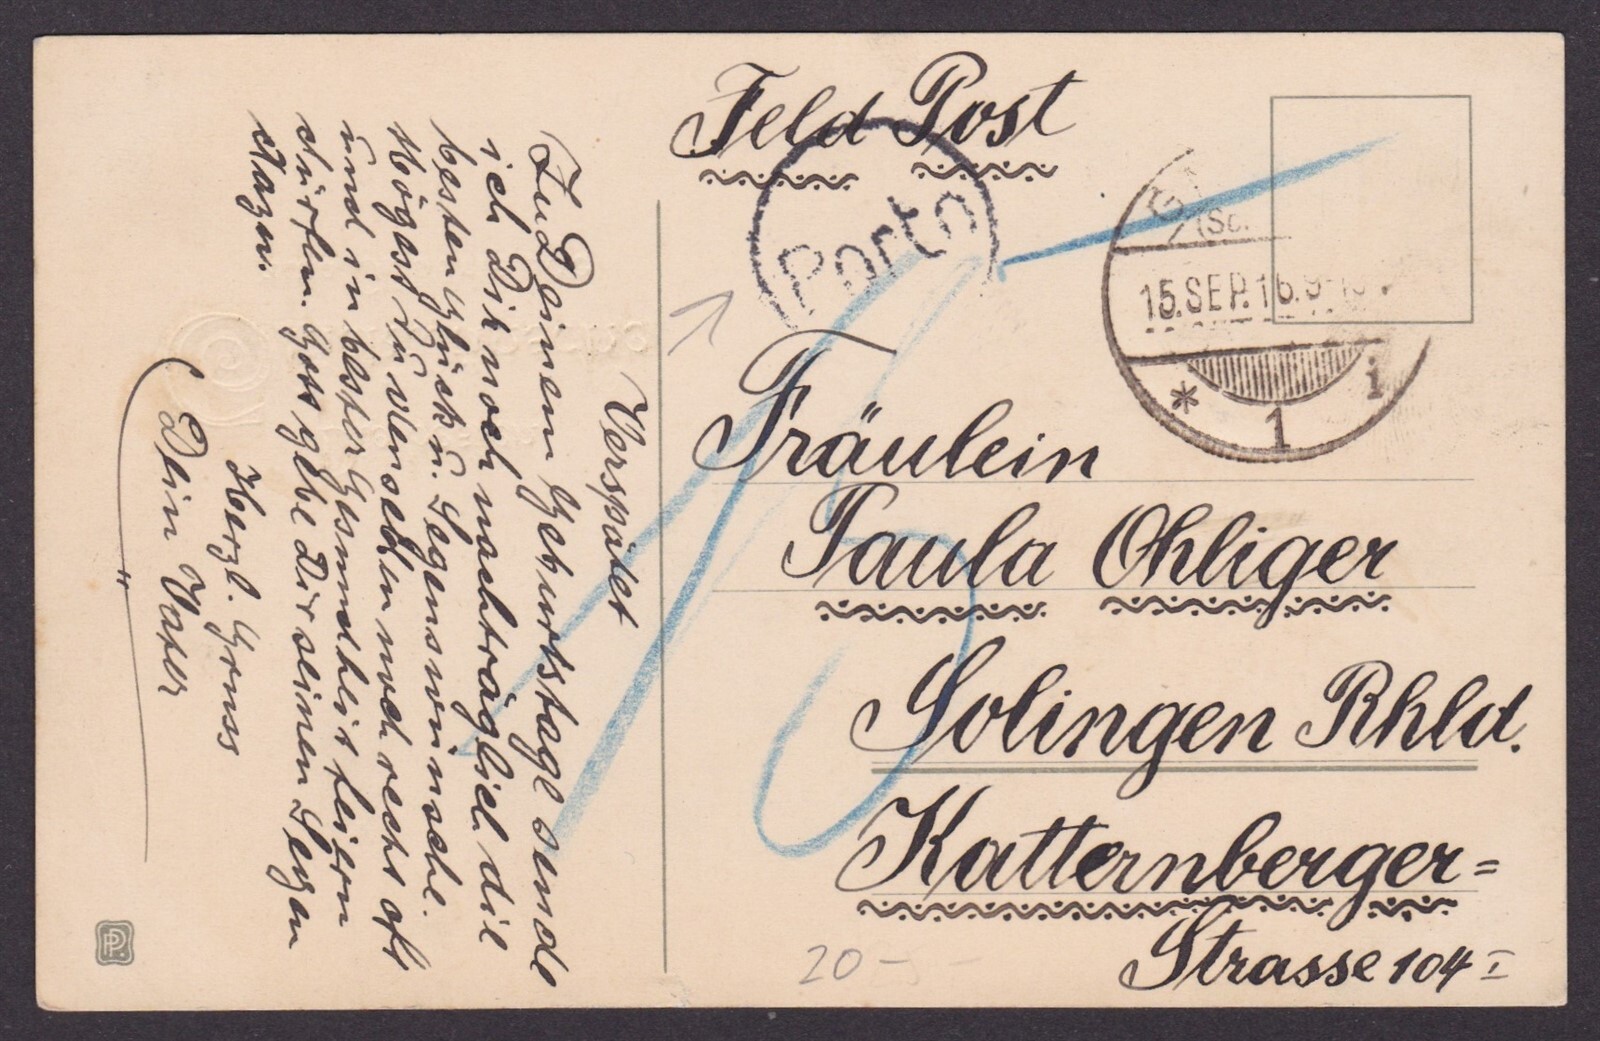 Feld Post
Porto
(Sc.
15.SEP.16.9-10
* 1 i
Fräulein
Paula Ohliger
Solingen Rhld.
Katternberger=
Strasse 104 I
15
20-
Verspätet
Zu Deinem Geburtstage sende
ich Dir noch nachträglich die
besten Glück u. Segenswünsche.
Mögest Du denselben noch recht oft
und in bester Gesundheit feiern
dürfen. Gott gebe Dir seinen Segen
dazu.
Herzl. Gruss
Dein Vater
PP.